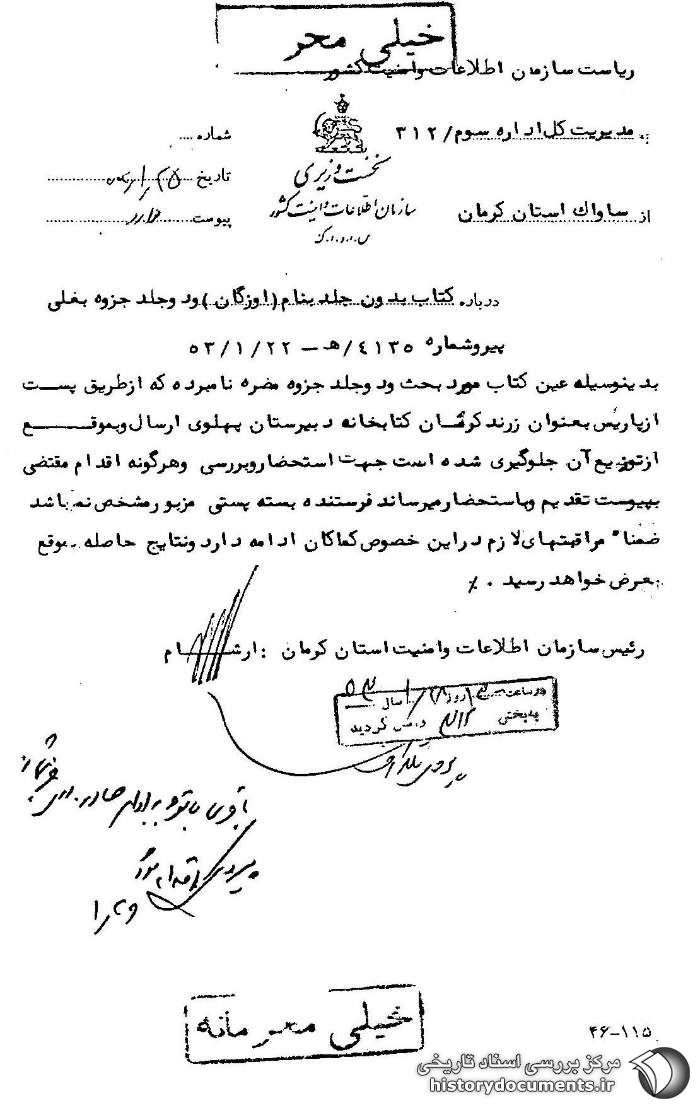 خیلی محر
ریاست سازمان اطلاعات وامنیت کشور
به مدیریت کل اداره سوم/ ۳۱۲
شماره
نخست وزیری
تاریخ
سازمان اطلاعات و امنیت کشور
س.ا.و.ا.ک
از ساواک استان کرمان
پیوست دارد
درباره کتاب بدون جلد بنام (اوزگان) ودوجلد جزوه بغلی
پیروشماره ۴۱۳۵/هـ - ۵۳/۱/۲۲
بدینوسیله عین کتاب مورد بحث ودوجلد جزوه مضره نامبرده که ازطریق پست
ازپاریس بعنوان زرند کرمان کتابخانه دبیرستان پهلوی ارسال وبموقع
ازتوزیع آن جلوگیری شده است جهت استحضاروبررسی وهرگونه اقدام مقتضی
بپیوست تقدیم وباستحضارمیرساند فرستنده بسته پستی مزبور مشخص نمیباشد
ضمنا" مراقبتهای لازم دراین خصوص کماکان ادامه دارد ونتایج حاصله بموقع
بعرض خواهد رسید . ٪
رئیس سازمان اطلاعات وامنیت استان کرمان : آرشام
درساعت روز سال ۵۳
به بخش ۳۱۲ گردید
خیلی محرمانه
۴۶-۱۱۵
مرکز بررسی اسناد تاریخی
historydocuments.ir